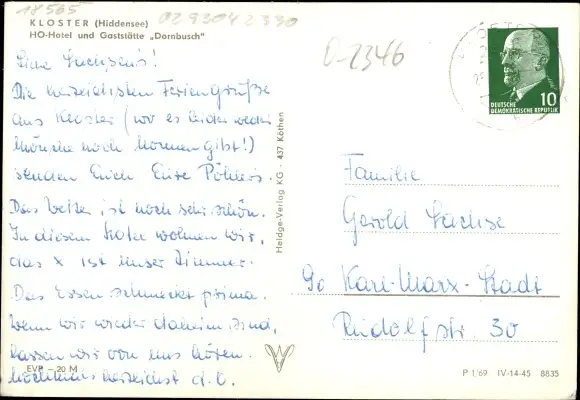 18565
0293042330
KLOSTER (Hiddensee)
HO-Hotel und Gaststätte „Dornbusch"
0-2346
Liebe Sachsen's!
Die herzlichsten Feriengrüße
aus Kloster (wo es leider weder
Mönche noch Nonnen gibt!)
senden Euch Eure Pöhlers.
Das Wetter ist noch sehr schön.
In diesem Hotel wohnen wir,
das x ist unser Zimmer.
Das Essen schmeckt prima.
Wenn wir wieder daheim sind,
lassen wir von uns hören.
Nochmals herzlichst d. O.
EVP – 20 M
Heldge-Verlag KG - 437 Köthen
10
DEUTSCHE
DEMOKRATISCHE REPUBLIK
Familie
Gerold Sachse
90 Karl-Marx-Stadt
Rudolfstr. 30
P 1/69 IV-14-45 8835